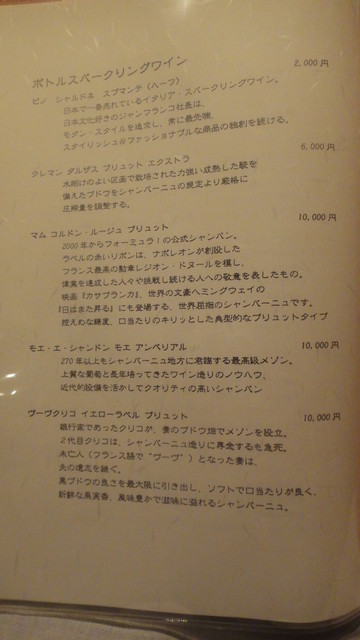 ボトルスパークリングワイン
ピノ シャルドネ スプマンテ (ハーフ) 2,000円
日本で一番売れているイタリア・スパークリングワイン。
日本文化好きのジャンフランコ社長は、
モダン・スタイルを追求し、常に最先端、
スタイリッシュ&ファッショナブルな商品の独創を続ける。
クレマン ダルザス ブリュット エクストラ 6,000円
水捌けのよい区画で栽培された力強い成熟した酸を
備えたブドウをシャンパーニュの規定より厳格に
圧搾量を調整する。
マム コルドン・ルージュ ブリュット 10,000円
2000年からフォーミュラ1の公式シャンパン。
ラベルの赤いリボンは、ナポレオンが創設した
フランス最高の勲章レジオン・ドヌールを模し、
偉業を達成した人々や挑戦し続ける人への敬意を表したもの。
映画『カサブランカ』、世界の文豪ヘミングウェイの
『日はまた昇る』にも登場する、世界屈指のシャンパーニュです。
控えめな糖度、口当たりのキリッとした典型的なブリュットタイプ
モエ・エ・シャンドン モエ アンペリアル 10,000円
270年以上もシャンパーニュ地方に君臨する最高級メゾン。
上質な葡萄と長年培ってきたワイン造りのノウハウ、
近代的設備を活かしてクオリティの高いシャンパン
ヴーヴクリコ イエローラベル ブリュット 10,000円
銀行家であったクリコが、妻のブドウ畑でメゾンを設立。
2代目クリコは、シャンパーニュ造りに専念するも急死。
未亡人(フランス語で"ヴーヴ")となった妻は、
夫の遺志を継ぐ。
黒ブドウの良さを最大限に引き出し、ソフトで口当たりが良く、
新鮮な果実香、風味豊かで滋味に溢れるシャンパーニュ。